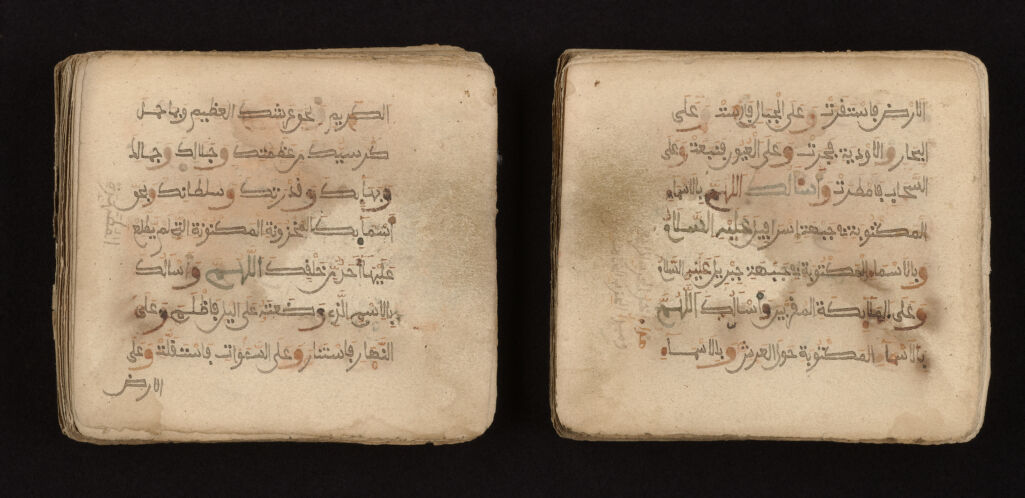 الكريم وبحق عرشك العظيم وبما حمل
كرسيك من عظمتك وجلالك وجمالك
وبهائك وقدرتك وسلطانك وبحق
أسمائك المخزونة المكنونة التي لم يطلع
عليها أحد من خلقك اللهم وأسألك
بالاسم الذي وضعته على اليل فاظلم وعلى
النهار فاستنار وعلى السموات فاستقلت وعلى
الارض
الارض فاستقرت وعلى الجبال فارست وعلى
البحار والاودية فجرت وعلى العيون فنبعت وعلى
السحاب فامطرت وأسألك اللهم بالاسماء
المكتوبة في جبهة اسرافيل عليه السلام
وبالاسماء المكتوبة في جبهة جبريل عليه السلام
وعلى الملائكة المقربين وأسألك اللهم
بالاسماء المكتوبة حول العرش وبالاسماء